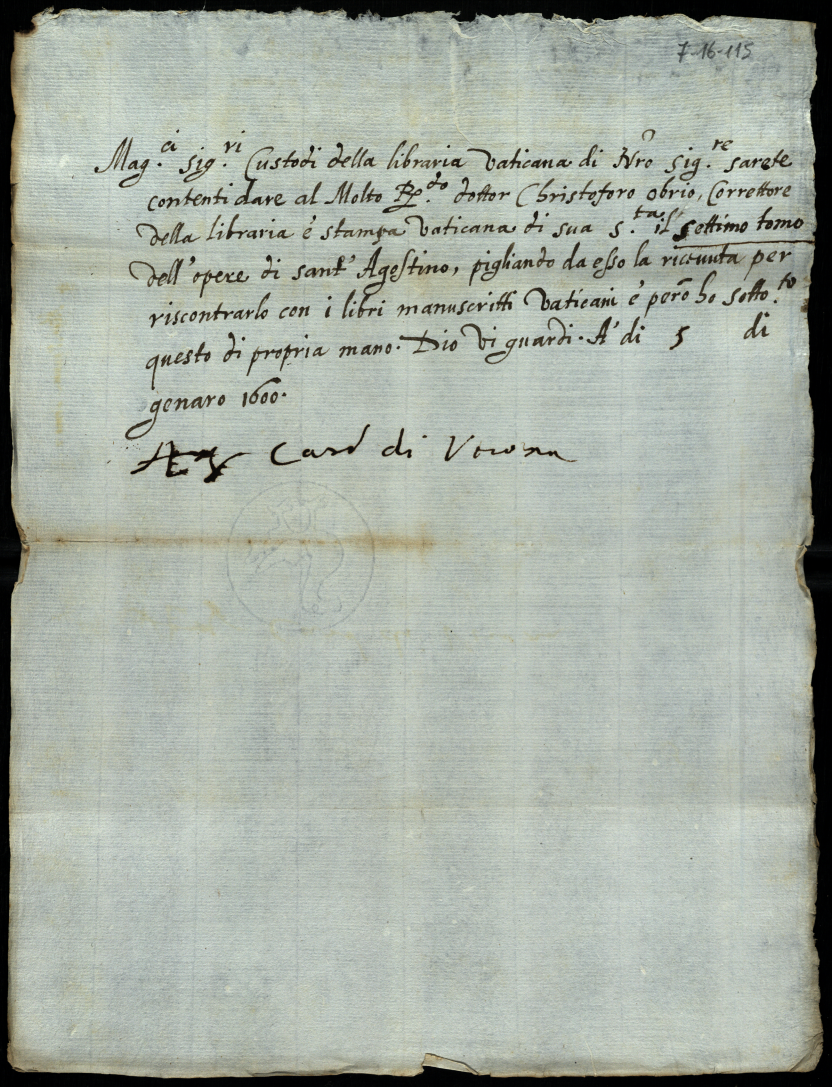 7-16-115
Mag.ci sig.ri Custodi della libraria Vaticana di Nro sig.re sarete
contenti dare al Molto R.do dottor Christoforo obrio, Correttore
della libraria è stampa Vaticana di sua s.ta il settimo tomo
dell'opere di sant' Agostino, pigliando da esso la ricevuta per
riscontrarlo con i libri manuscritti Vaticani è però ho sotto.to
questo di propria mano. Dio vi guardi. A' di 5 di
genaro 1600.
Card di Verona